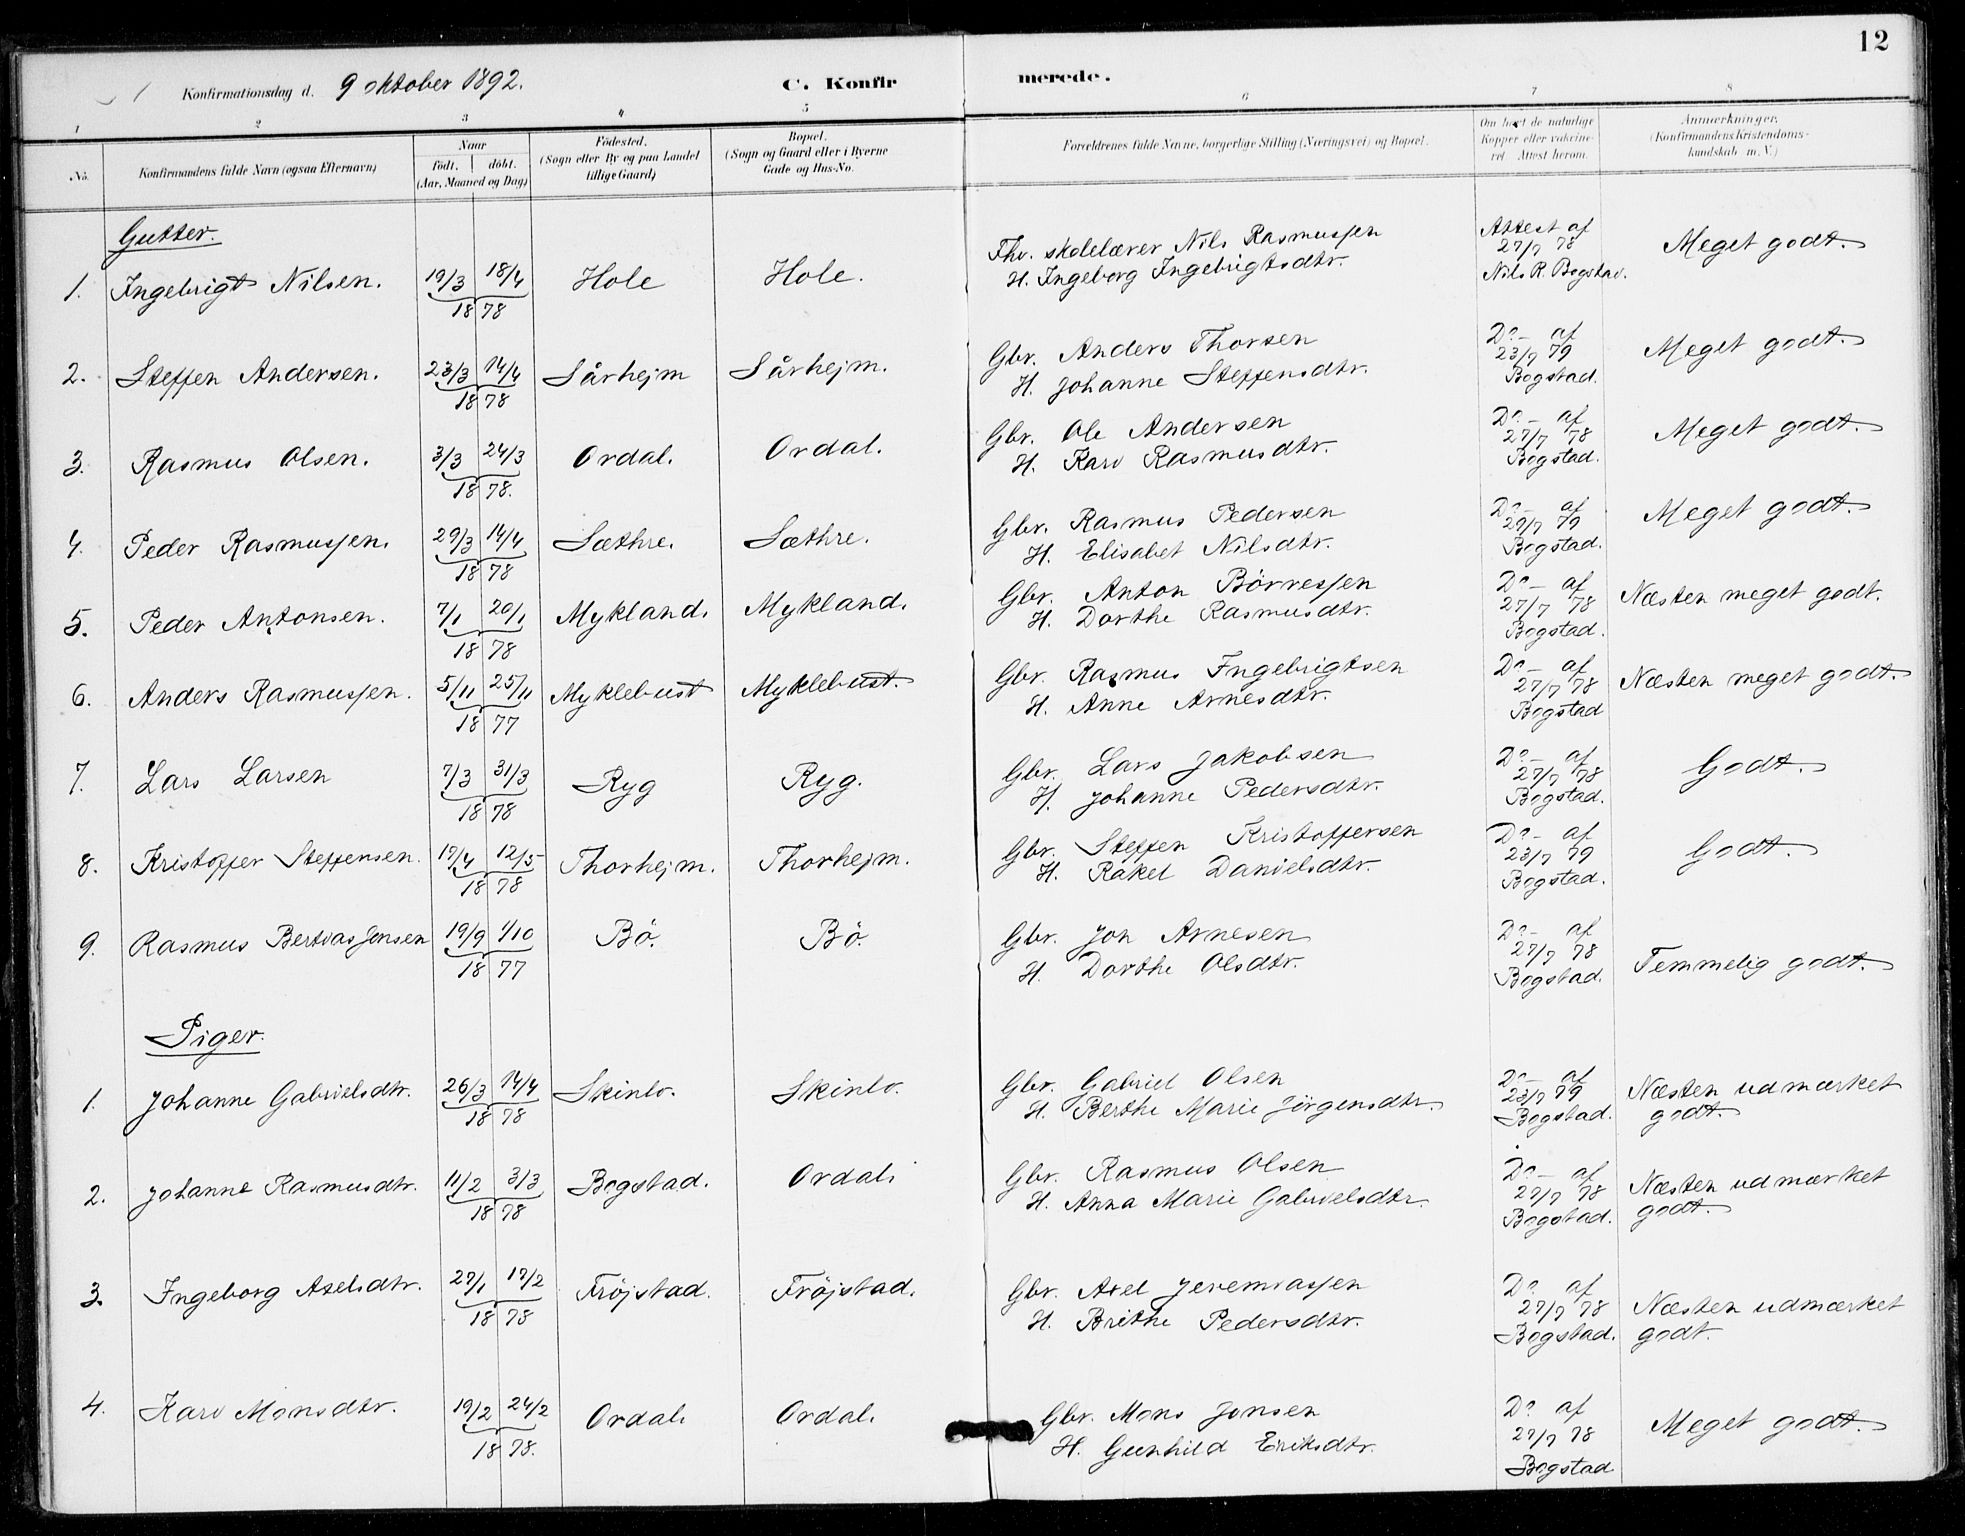 12
Konfirmationsdag d. 9 oktober 1892. C. Konfirmerede.
1 2 3 4 5 6 7 8
No. Konfirmandens fulde Navn (ogsaa Efternavn) Naar født. døbt. (Aar, Maaned og Dag) Fødested. (Sogn eller By og paa Landet tillige Gaard) Bopæl. (Sogn og Gaard eller i Byerne Gade og Hus-No. Forældrenes fulde Navne, borgerlige Stilling (Næringsvei) og Bopæl. Om havt de naturlige Kopper eller vakcineret. Attest herom. Anmærkninger. (Konfirmandens Kristendomskundskab m. V.)
Gutter.
1. Ingebrigt Nilsen. 19/3 18/4 1878 Hole Hole. Fhv. skolelærer Nils Rasmussen
H. Ingeborg Ingebrigtsdtr. Attest af 27/7 78 Nils R. Bogstad. Meget godt.
2. Steffen Andersen. 23/3 14/4 1878 Sårhejm Sårhejm. Gbr. Anders Thorsen
H. Johanne Steffensdtr. Do - af 23/7 79 Bogstad. Meget godt.
3. Rasmus Olsen. 3/3 24/3 1878. Ordal. Ordal. Gbr. Ole Andersen
H. Kari Rasmusdtr. Do - af 27/7 78 Bogstad. Meget godt.
4. Peder Rasmussen. 29/3 14/4 1878 Sæthre. Sæthre. Gbr. Rasmus Pedersen
H. Elisabet Nilsdtr. Do - af 29/7 79 Bogstad. Meget godt.
5. Peder Antonsen. 7/1 20/1 1878 Mykland. Mykland. Gbr. Anton Börresen
H. Dorthe Rasmusdtr. Do - af 27/7 78 Bogstad. Næsten meget godt.
6. Anders Rasmussen. 5/11 25/11 1877 Myklebust Myklebust. Gbr. Rasmus Ingebrigtsen
H. Anne Arnesdtr. Do - af 27/7 78 Bogstad Næsten meget godt.
7. Lars Larsen 7/3 31/3 1878 Ryg Ryg. Gbr. Lars Jakobsen
H. Johanne Pedersdtr. Do - af 27/7 78 Bogstad. Godt.
8. Kristoffer Steffensen. 17/4 12/5 1878 Thorhejm. Thorhejm. Gbr. Steffen Kristoffersen
H. Rakel Danielsdtr. Do - af 23/7 79 Bogstad. Godt.
9. Rasmus Bertias Jonsen 19/9 7/10 1877 Bö. Bö. Gbr. Jon Arnesen
H. Dorthe Olsdtr. Do - af 27/7 78 Bogstad. Temmelig godt.
Piger.
1. Johanne Gabrielsdtr. 26/3 14/4 1878 Skinlo. Skinlo. Gbr. Gabriel Olsen
H. Berthe Marie Jörgensdtr. Do - af 23/7 79 Bogstad. Næsten udmærket godt.
2. Johanne Rasmusdtr. 11/2 3/3 1878 Bogstad. Ordal. Gbr. Rasmus Olsen
H. Anna Marie Gabrielsdtr. Do - af 27/7 78 Bogstad. Næsten udmærket godt.
3. Ingeborg Axelsdtr. 27/1 17/2 1878 Fröjstad. Fröjstad. Gbr. Axel Jeremiassen
H. Brithe Pedersdtr. Do af 27/7 78 Bogstad. Næsten udmærket godt.
4. Kari Monsdtr. 19/2 24/2 1878. Ordal. Ordal. Gbr. Mons Jonsen
H. Gunhild Eriksdtr. Do af 27/7 78 Bogstad Meget godt.